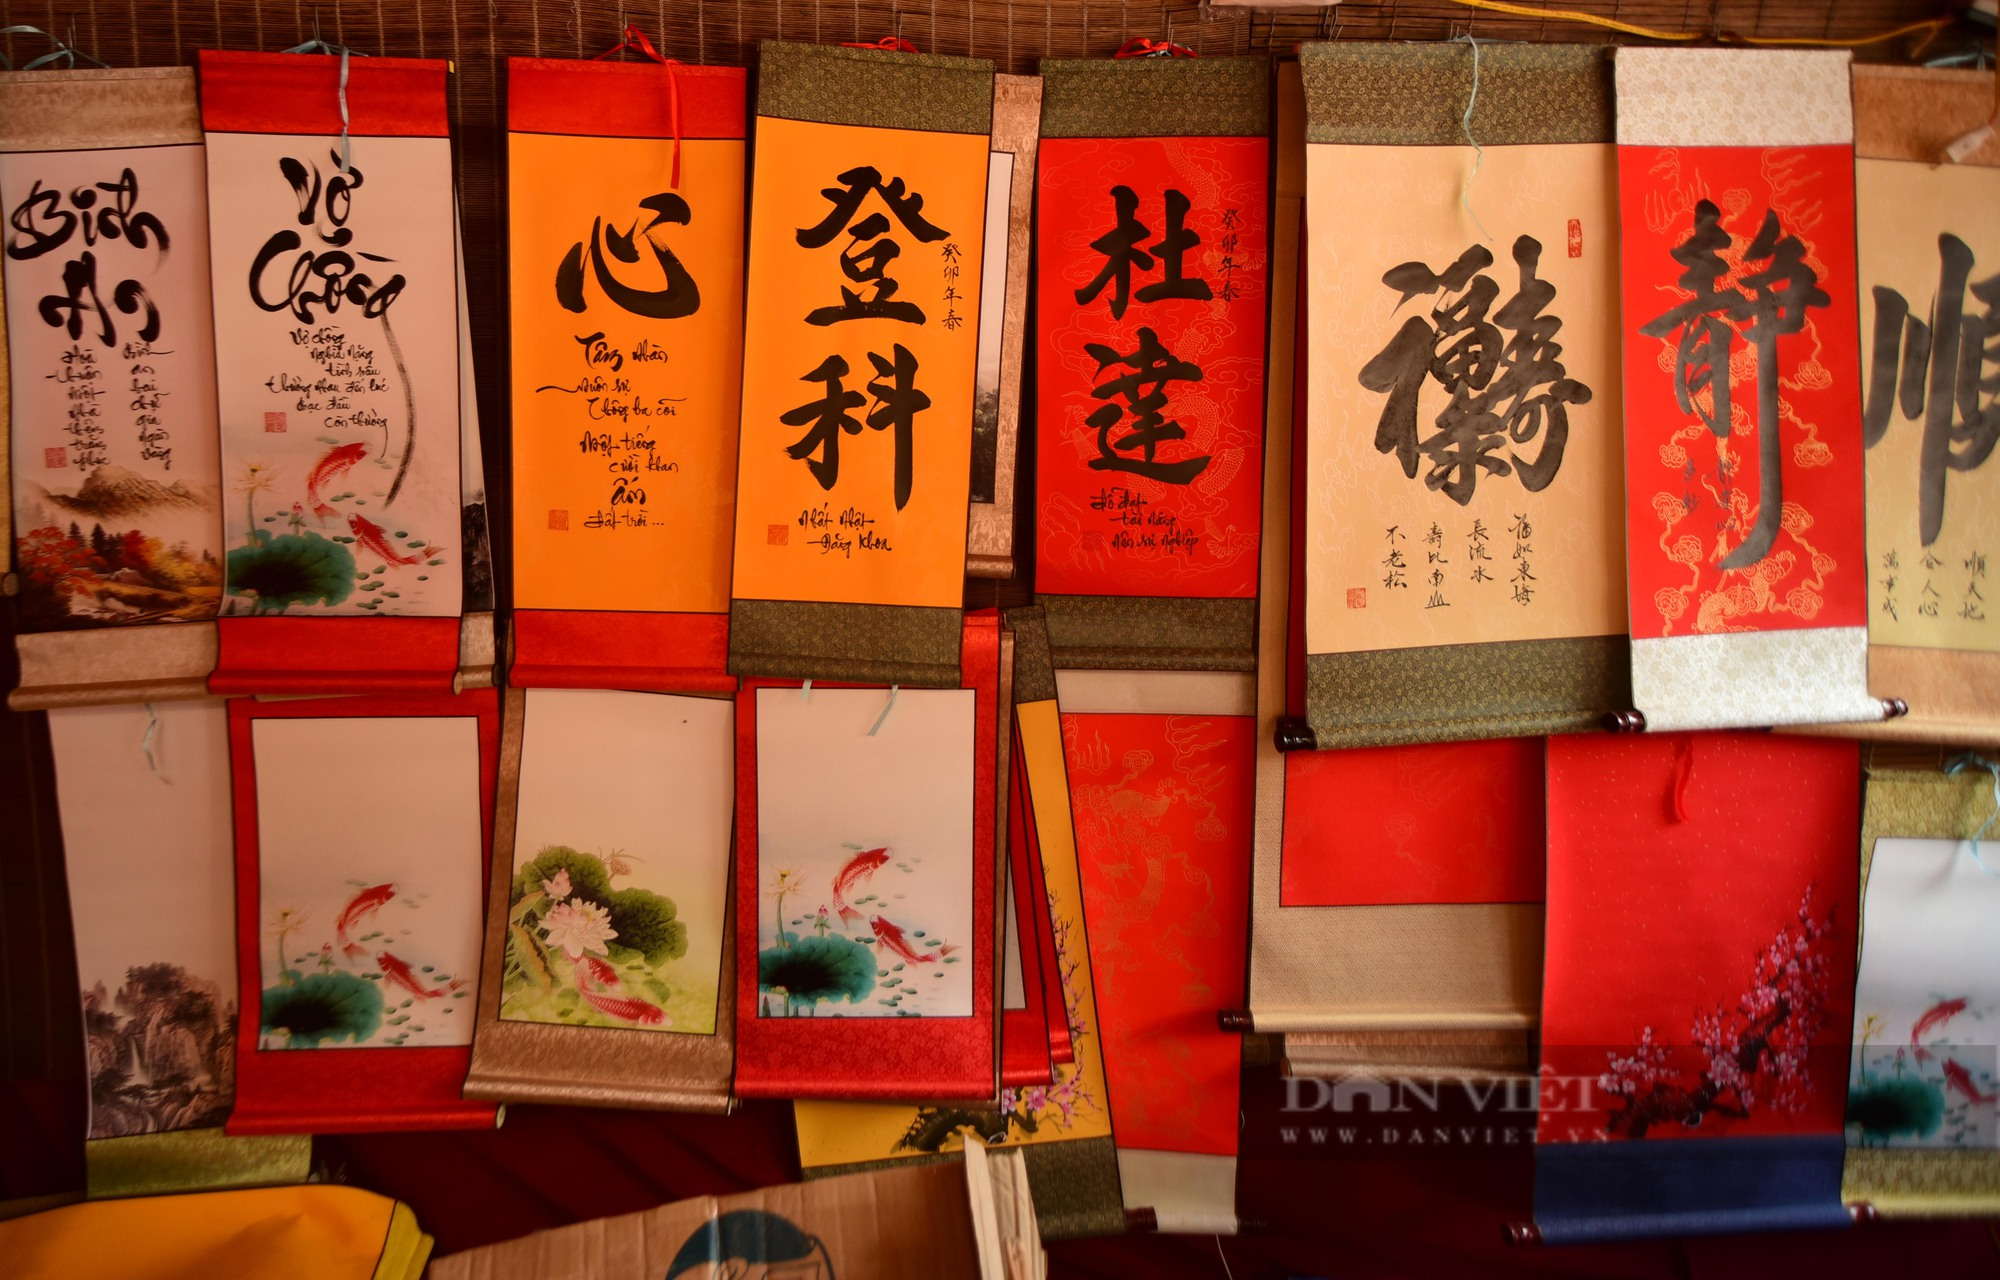 Bình
An
Vợ
Chồng
Vợ chồng
nghĩa nặng
tình sâu
thương nhau đến lúc
bạc đầu
còn thương
心
Tâm nhàn
muôn sự
thông ba cõi
Một tiếng
cười khan
ấm
đất trời...
登科
癸卯年春
Nhất nhật
Đăng khoa
杜達
癸卯年春
Đỗ đạt
tài năng
nên sự nghiệp
福如東海
長流水
壽比南山
不老松
靜
順
順天地
合人心
萬事成
DÂN VIỆT
WWW.DANVIET.VN